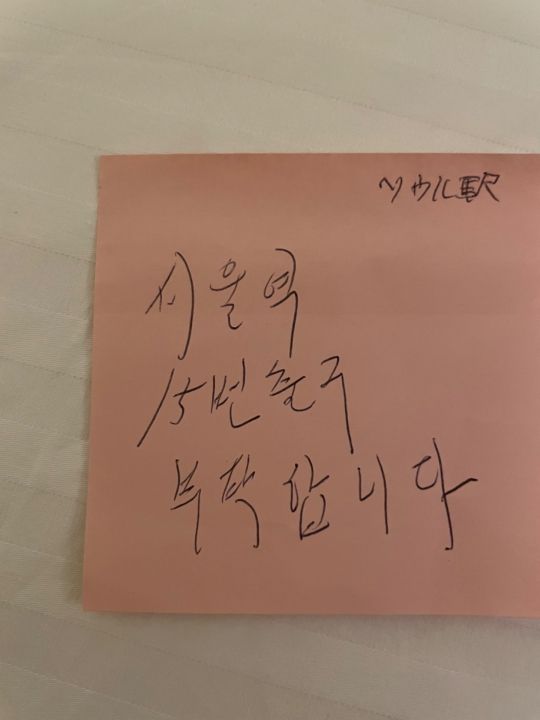 ソウル駅
서울역
15번 출구
부탁합니다